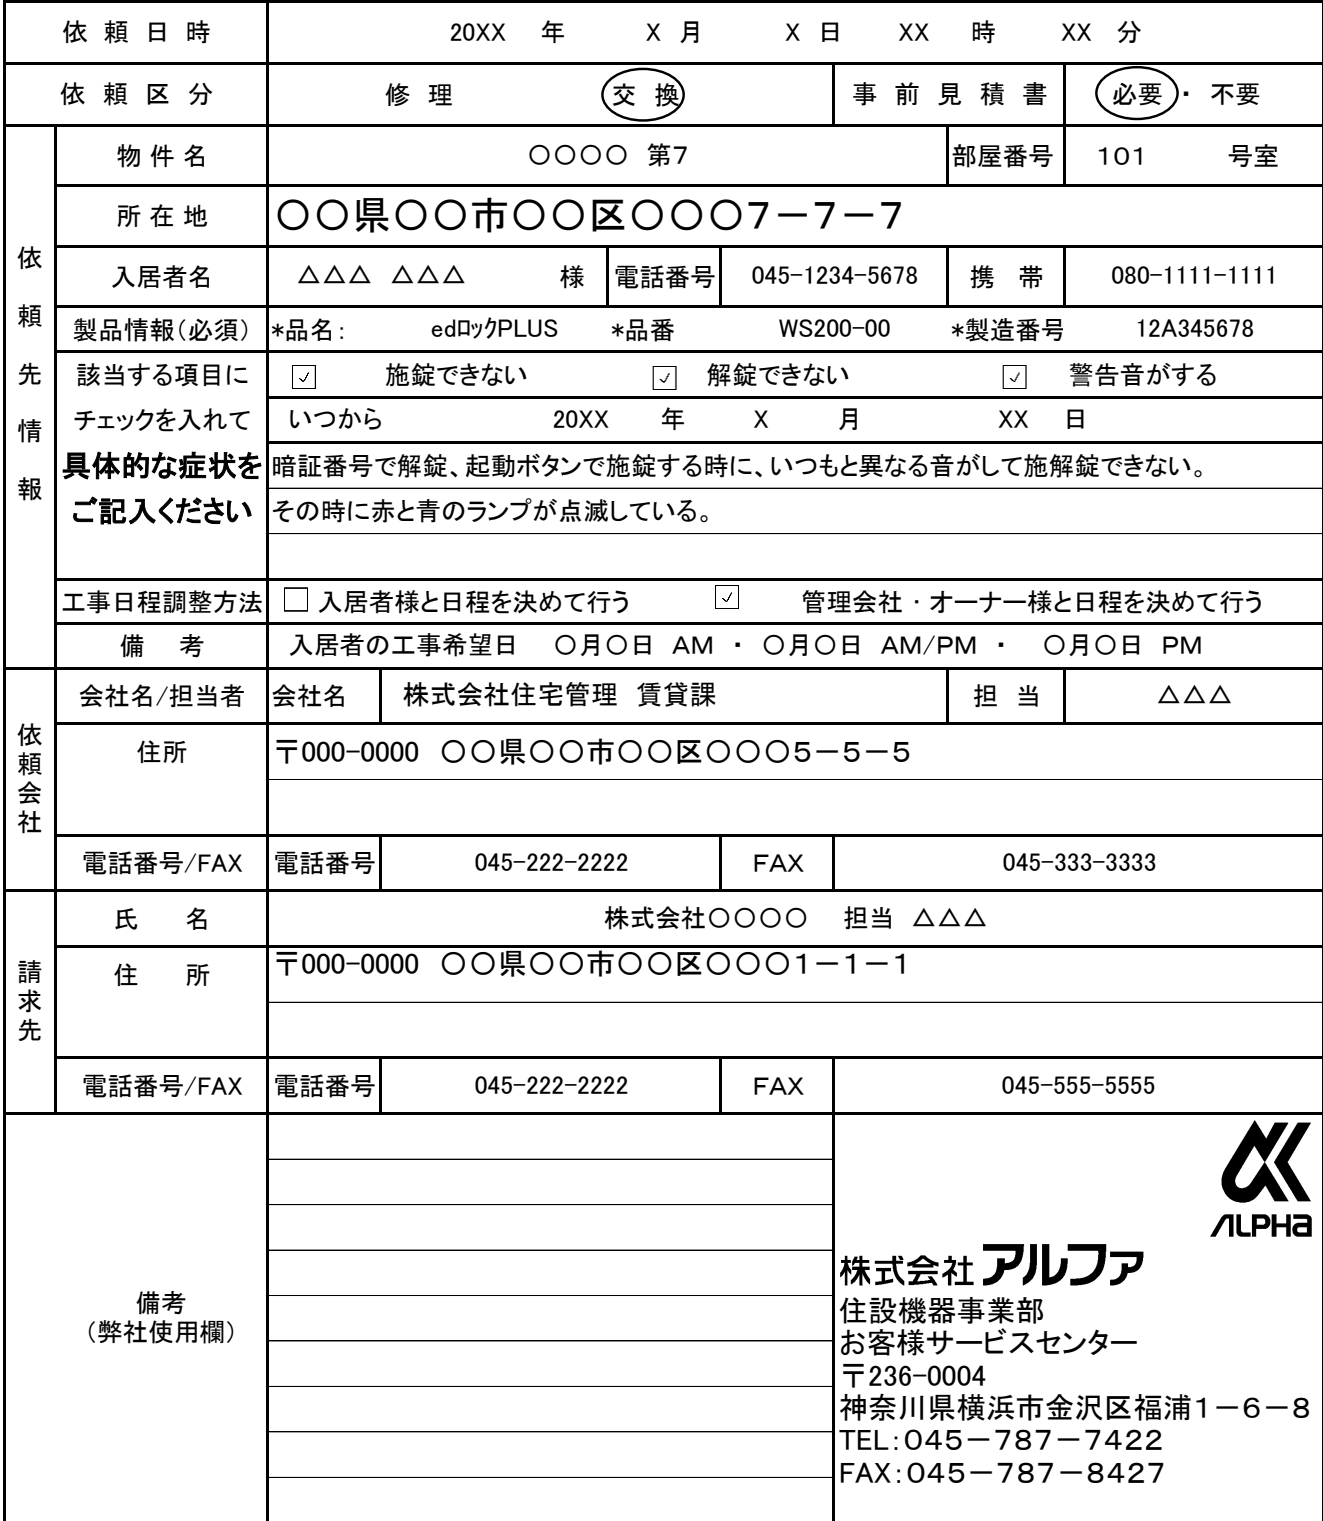 依頼日時 20XX 年 X 月 X 日 XX 時 XX 分
依頼区分 修理 交換 事前見積書 必要・不要
依頼先情報
物件名 〇〇〇〇 第7 部屋番号 101 号室
所在地 〇〇県〇〇市〇〇区〇〇〇7－7－7
入居者名 △△△ △△△ 様 電話番号 045-1234-5678 携帯 080-1111-1111
製品情報(必須) *品名: edﾛｯｸPLUS *品番 WS200-00 *製造番号 12A345678
該当する項目に ☑ 施錠できない ☑ 解錠できない ☑ 警告音がする
チェックを入れて いつから 20XX 年 X 月 XX 日
具体的な症状を 暗証番号で解錠、起動ボタンで施錠する時に、いつもと異なる音がして施解錠できない。
ご記入ください その時に赤と青のランプが点滅している。
工事日程調整方法 □ 入居者様と日程を決めて行う ☑ 管理会社・オーナー様と日程を決めて行う
備考 入居者の工事希望日 〇月〇日 AM ・ 〇月〇日 AM/PM ・ 〇月〇日 PM
依頼会社
会社名/担当者 会社名 株式会社住宅管理 賃貸課 担当 △△△
住所 〒000-0000 〇〇県〇〇市〇〇区〇〇〇5－5－5
電話番号/FAX 電話番号 045-222-2222 FAX 045-333-3333
請求先
氏名 株式会社〇〇〇〇 担当 △△△
住所 〒000-0000 〇〇県〇〇市〇〇区〇〇〇1－1－1
電話番号/FAX 電話番号 045-222-2222 FAX 045-555-5555
備考
(弊社使用欄)
ALPHA
株式会社アルファ
住設機器事業部
お客様サービスセンター
〒236-0004
神奈川県横浜市金沢区福浦1－6－8
TEL:045－787－7422
FAX:045－787－8427